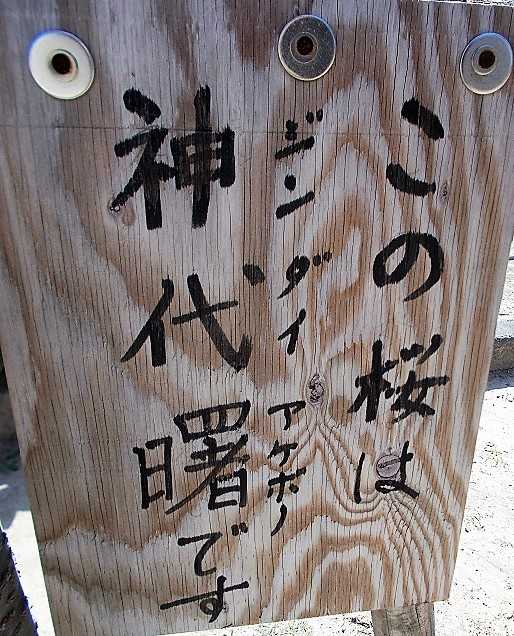 この桜は
ジンダイ アケボノ
神代曙です